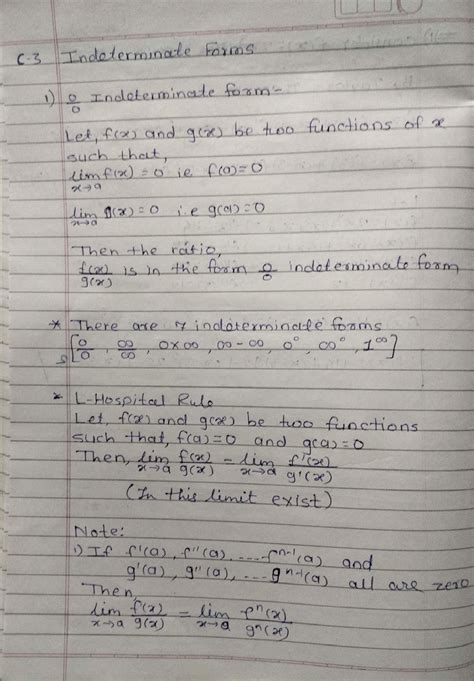 C-3 Indeterminate Forms
1) 0/0 Indeterminate form-
Let, f(x) and g(x) be two functions of x
such that,
lim x→a f(x) = 0 ie f(a)=0
lim x→a g(x) = 0 i.e g(a)=0
Then the ratio,
f(x)/g(x) is in the form 0/0 indeterminate form
* There are 7 indeterminate forms
[0/0, ∞/∞, 0×∞, ∞-∞, 0°, ∞°, 1^∞]
* L-Hospital Rule
Let, f(x) and g(x) be two functions
such that, f(a)=0 and g(a)=0
Then, lim x→a f(x)/g(x) = lim x→a f'(x)/g'(x)
(In this limit exist)
Note:
1) If f'(a), f''(a), ---- f^n-1(a) and
g'(a), g''(a), ---- g^n-1(a) all are zero
Then,
lim x→a f(x)/g(x) = lim x→a f^n(x)/g^n(x)